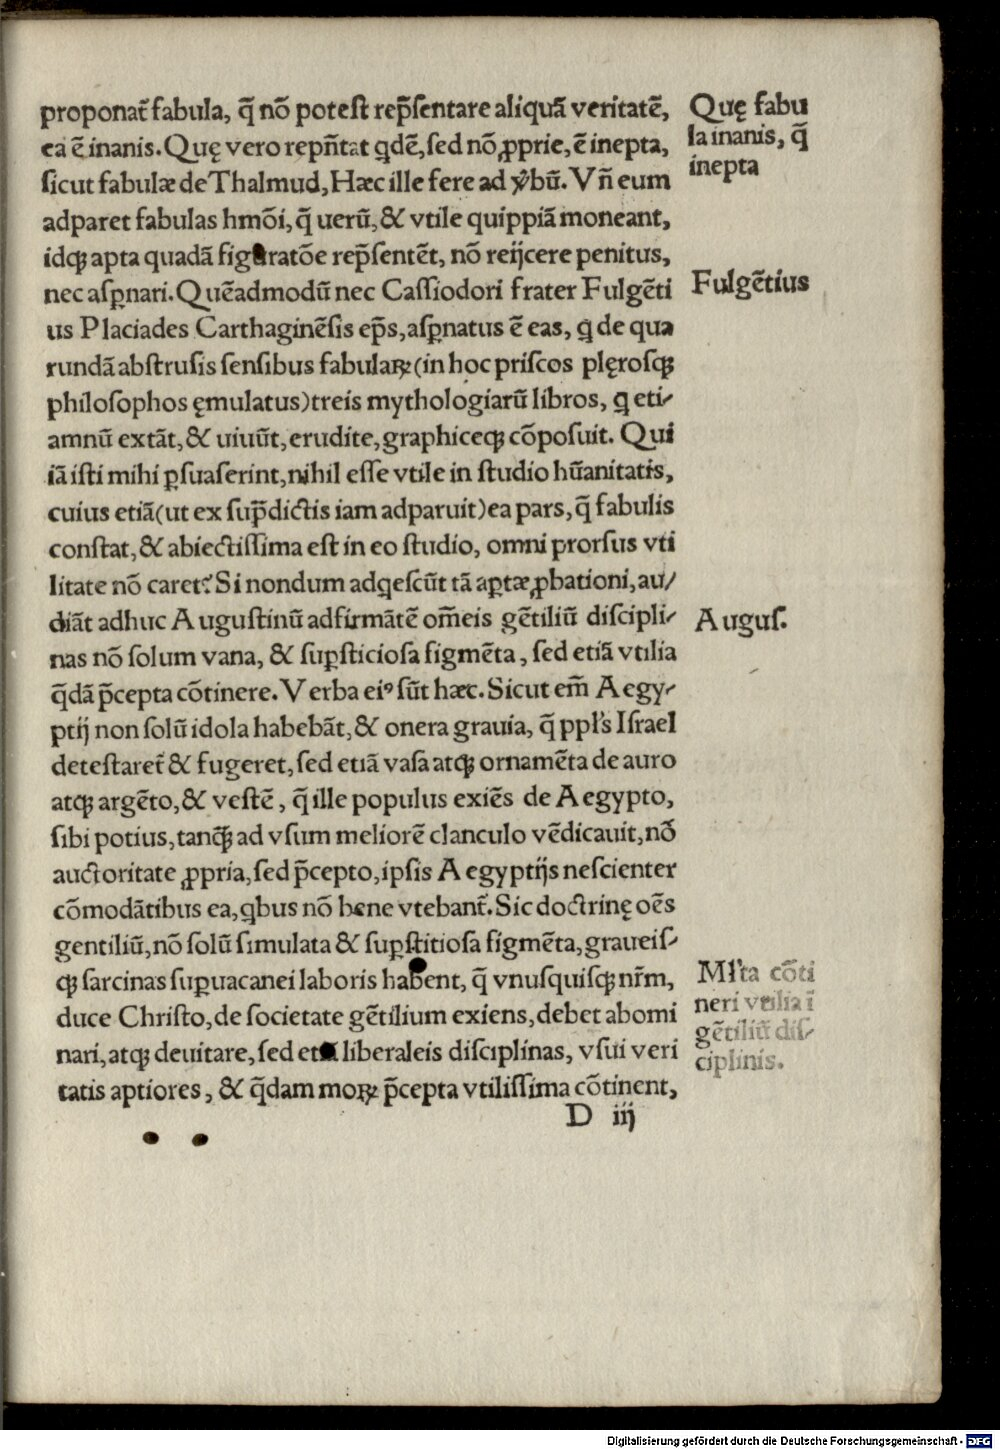 proponat̃ fabula, q̃ nõ potest rep̃sentare aliquã veritatẽ,
ea ẽ inanis. Quę vero repñtat qdẽ, sed nõ ꝓprie, ẽ inepta,
sicut fabulæ de Thalmud, Hæc ille fere ad ꝟbũ. Vñ eum
adparet fabulas hmõi, q̃ uerũ, & vtile quippiã moneant,
idqꝫ apta quadã figuratõe rep̃sentẽt, nõ reijcere penitus,
nec asꝑnari. Quẽadmodũ nec Cassiodori frater Fulgẽti
us Placiades Carthaginẽsis ep̃s, asꝑnatus ẽ eas, q de qua
rundã abstrusis sensibus fabulaꝝ (in hoc priscos plęrosqꝫ
philosophos ęmulatus) treis mythologiarũ libros, q eti-
amnũ extãt, & uiuũt, erudite, graphiceqꝫ cõposuit. Qui
iã isti mihi ꝑsuaserint, nihil esse vtile in studio hũanitatis,
cuius etiã (ut ex sup̃dictis iam adparuit) ea pars, q̃ fabulis
constat, & abiectissima est in eo studio, omni prorsus vti
litate nõ caret? Si nondum adqescũt tã aptæ ꝓbationi, au-
diãt adhuc Augustinũ adfirmãtẽ om̃eis gẽtiliũ discipli-
nas nõ solum vana, & suꝑsticiosa figmẽta, sed etiã vtilia
q̃dã p̃cepta cõtinere. Verba eiꝰ sũt hæc. Sicut em̃ Aegy-
ptij non solũ idola habebãt, & onera grauia, q̃ ppl's Israel
detestaret̃ & fugeret, sed etiã vasa atqꝫ ornamẽta de auro
atqꝫ argẽto, & vestẽ, q̃ ille populus exiẽs de Aegypto,
sibi potius, tanq̃ꝫ ad vsum meliorẽ clanculo vẽdicauit, nõ
auctoritate ꝓpria, sed p̃cepto, ipsis Aegyptijs nescienter
cõmodãtibus ea, qbus nõ bene vtebant̃. Sic doctrinę oẽs
gentiliũ, nõ solũ simulata & suꝑstitiosa figmẽta, graueis-
qꝫ sarcinas suꝑuacanei laboris habent, q̃ vnusquisqꝫ nr̃m,
duce Christo, de societate gẽtilium exiens, debet abomi
nari, atqꝫ deuitare, sed etiã liberaleis disciplinas, vsui veri
tatis aptiores, & q̃dam moꝝ p̃cepta vtilissima cõtinent,
D iij
Quę fabu
la inanis, q̃
inepta
Fulgẽtius
Augus.
Ml'ta cõti
neri vtilia ĩ
gẽtiliũ dis-
ciplinis.
Digitalisierung gefördert durch die Deutsche Forschungsgemeinschaft - DFG